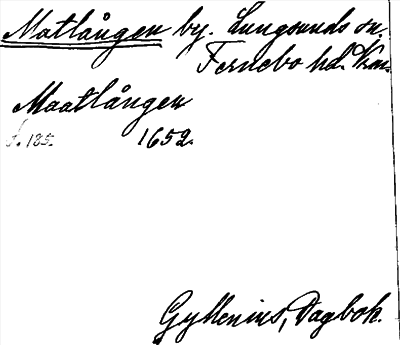 Matlången by. Lungsunds sn.
Fernebo hd. Krm.
Maatlången
s. 185. 1652.
Gyllenius, Dagbok.